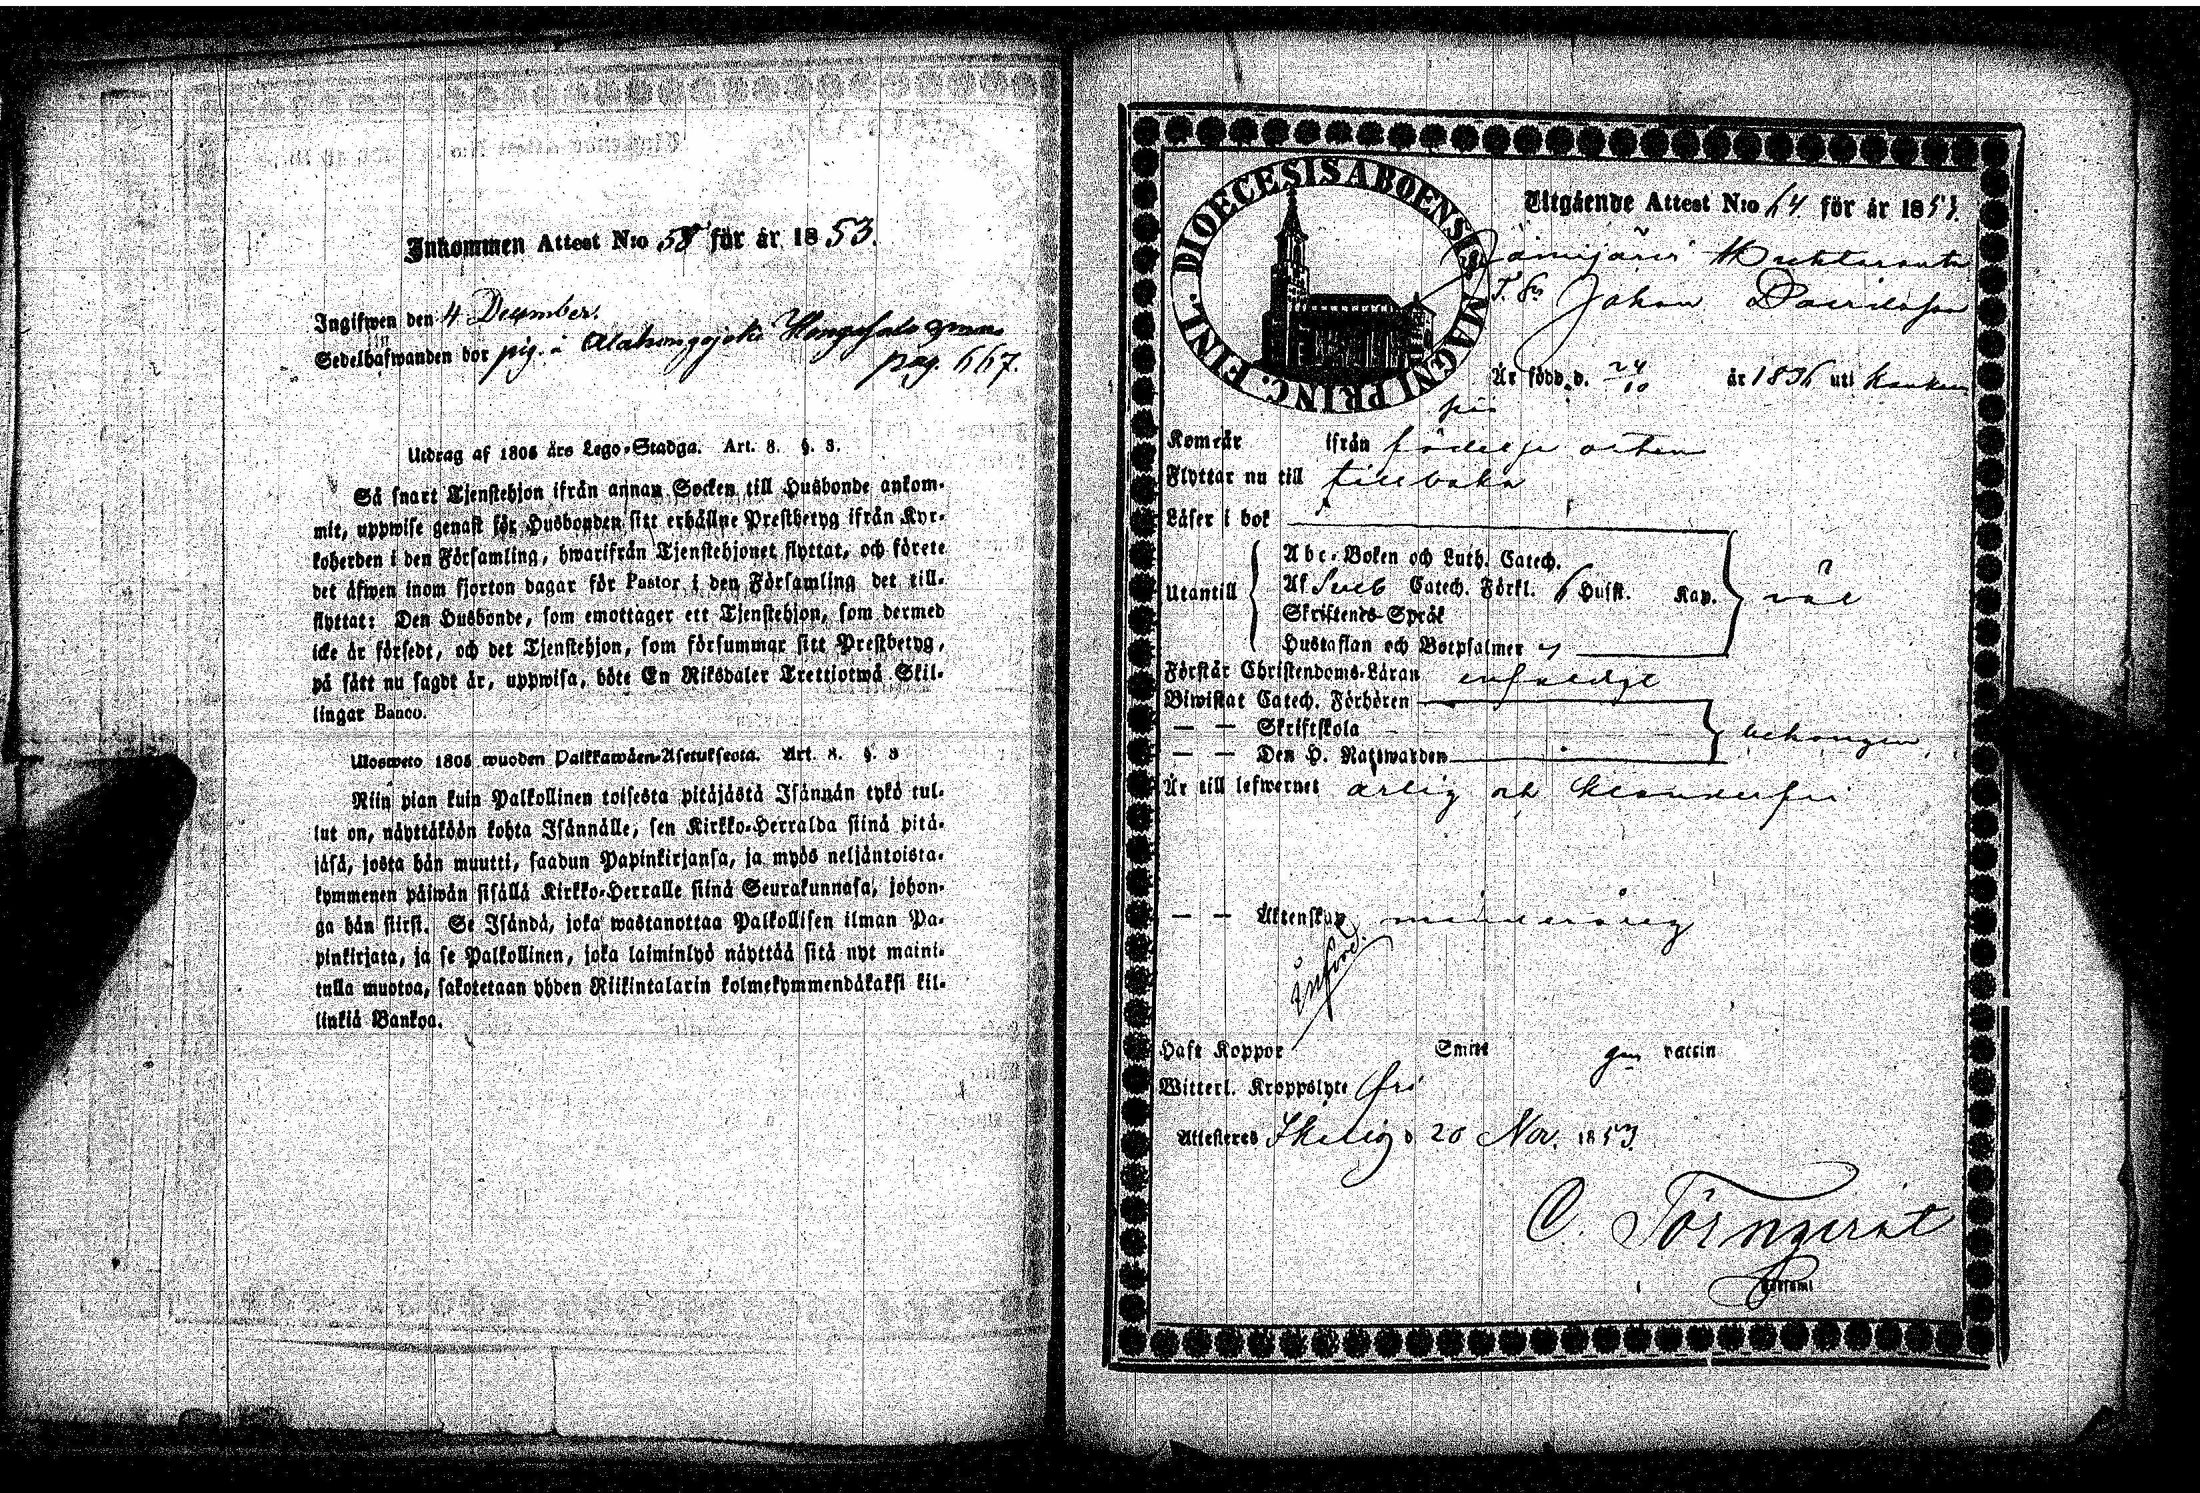 Inkommen Attest N:o 58 för år 1853.
Ingifwen den 4 December.
Sedelhafwanden bor pig. å
pag. 667.
Utdrag af 1805 års Lego-Stadga. Art. 8. §. 3.
Så snart Tjenstehjon ifrån annan Socken till Husbonde ankom-
mit, uppwise genast för Husbonden sitt erhållne Prestbetyg ifrån Kyr-
koherden i den Församling, hwarifrån Tjenstehjonet flyttat, och förete
det äfwen inom fjorton dagar för Pastor i den Församling det till-
flyttat: Den Husbonde, som emottager ett Tjenstehjon, som dermed
icke är försedt, och det Tjenstehjon, som försummar sitt Prestbetyg,
på sätt nu sagdt är, uppwisa, böte En Riksdaler Trettiotwå Skil-
lingar Banco.
Ulosweto 1805 wuoden Palkkawäen-Asetuksesta. Art. 8. §. 3
Niin pian kuin Palkollinen toisesta pitäjästä Isännän tykö tul-
lut on, näyttäköön kohta Isännälle, sen Kirkko-Herralda siinä pitä-
jäsä, josta hän muutti, saadun Papinkirjansa, ja myös neljäntoista-
kymmenen päiwän sisällä Kirkko-Herralle siinä Seurakunnasa, johon-
ga hän siirsi. Se Isändä, joka wastanottaa Palkollisen ilman Pa-
pinkirjata, ja se Palkollinen, joka laiminlyö näyttää sitä nyt maini-
tulla muotoa, sakotetaan yhden Riikintalarin kolmekymmendäkaksi kil-
linkiä Bankoa.
DIOECESIS ABOENSIS MAGNI PRINC. FINL.
Utgående Attest N:o 64 för år 1853.
Jämijärvi
Johan Davidsson
Är född d. 24/10 år 1836 uti Kankan
pää
Kom år ifrån födelse orten
Flyttar nu till tillbaka
Läser i bok
Utantill
Abc-Boken och Luth. Catech.
Af Sveb Catech. Förkl. 6 Hufst. Kap.
Skriftenes-Språk
Hustaflan och Botpsalmer
väl
Förstår Christendoms-Läran enfaldigt
Biwistat Catech. Förhören
— — Skriftskola
— — Den H. Nattwarden
behörigen
Är till lefwernet ärlig och klanderfri
— — Äktenskap minderårig
Införd.
Haft Koppor Smitt gm vaccin
Witterl. Kroppslyte fri
Attesteras d 20 Nov. 1853
C. Törnqvist